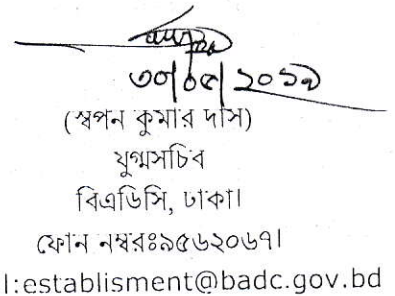 ৩০|০৫|২০১৯
(স্বপন কুমার দাস)
যুগ্মসচিব
বিএডিসি, ঢাকা।
ফোন নম্বরঃ৯৫৬২০৬৭।
l:establisment@badc.gov.bd